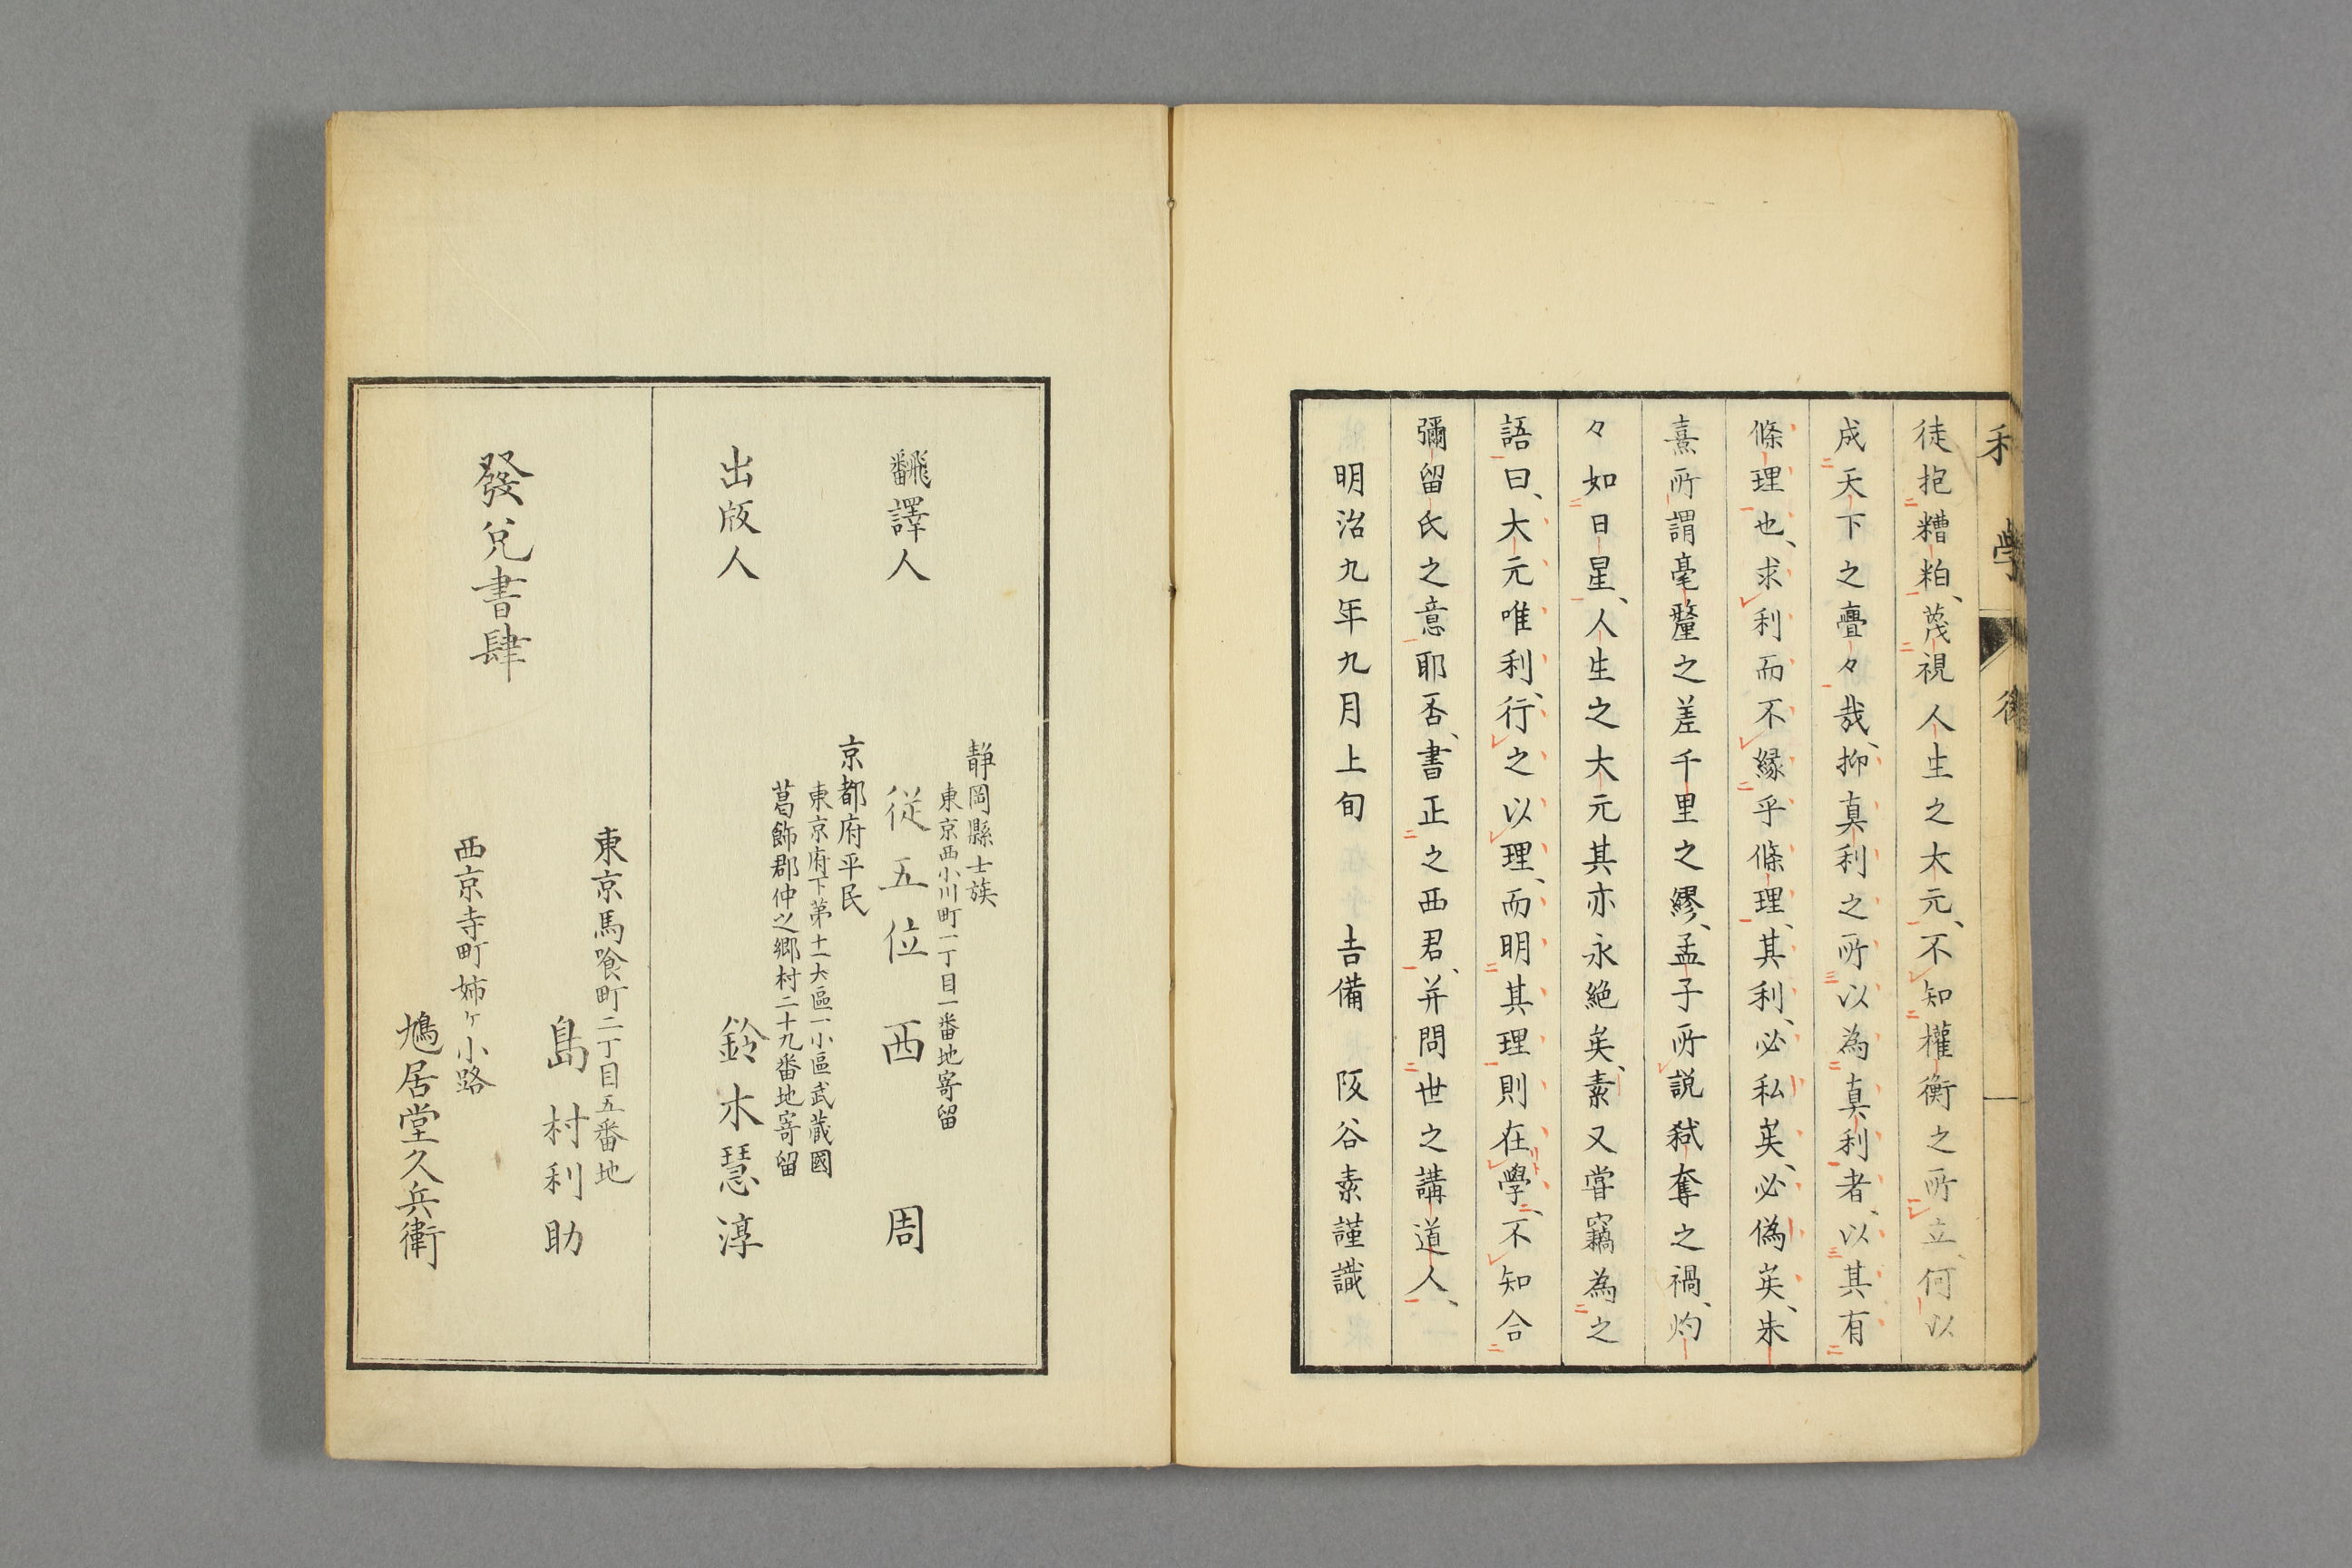 利學
後
徒抱糟粕、蔑視人生之大元、不知權衡之所立、何以
成天下之亹々哉、抑真利之所以為真利者、以其有
條理也、求利而不緣乎條理、其利、必私矣、必偽矣、朱
熹所謂毫釐之差千里之繆、孟子所說弒奪之禍、灼
々如日星、人生之大元其亦永絕矣、素又嘗竊為之
語曰、大元唯利、行之以理、而明其理則在學、不知合
彌留氏之意耶否、書正之西君、并問世之講道人、
明治九年九月上旬　吉備　阪谷素謹識
飜譯人
靜岡縣士族
東京西小川町一丁目一番地寄留
従五位　西　周
出版人
京都府平民
東京府下第十一大區一小區武藏國
葛飾郡仲之郷村二十九番地寄留
鈴木慧淳
發兌書肆
東京馬喰町二丁目五番地
島村利助
西京寺町姉ヶ小路
鳩居堂久兵衛